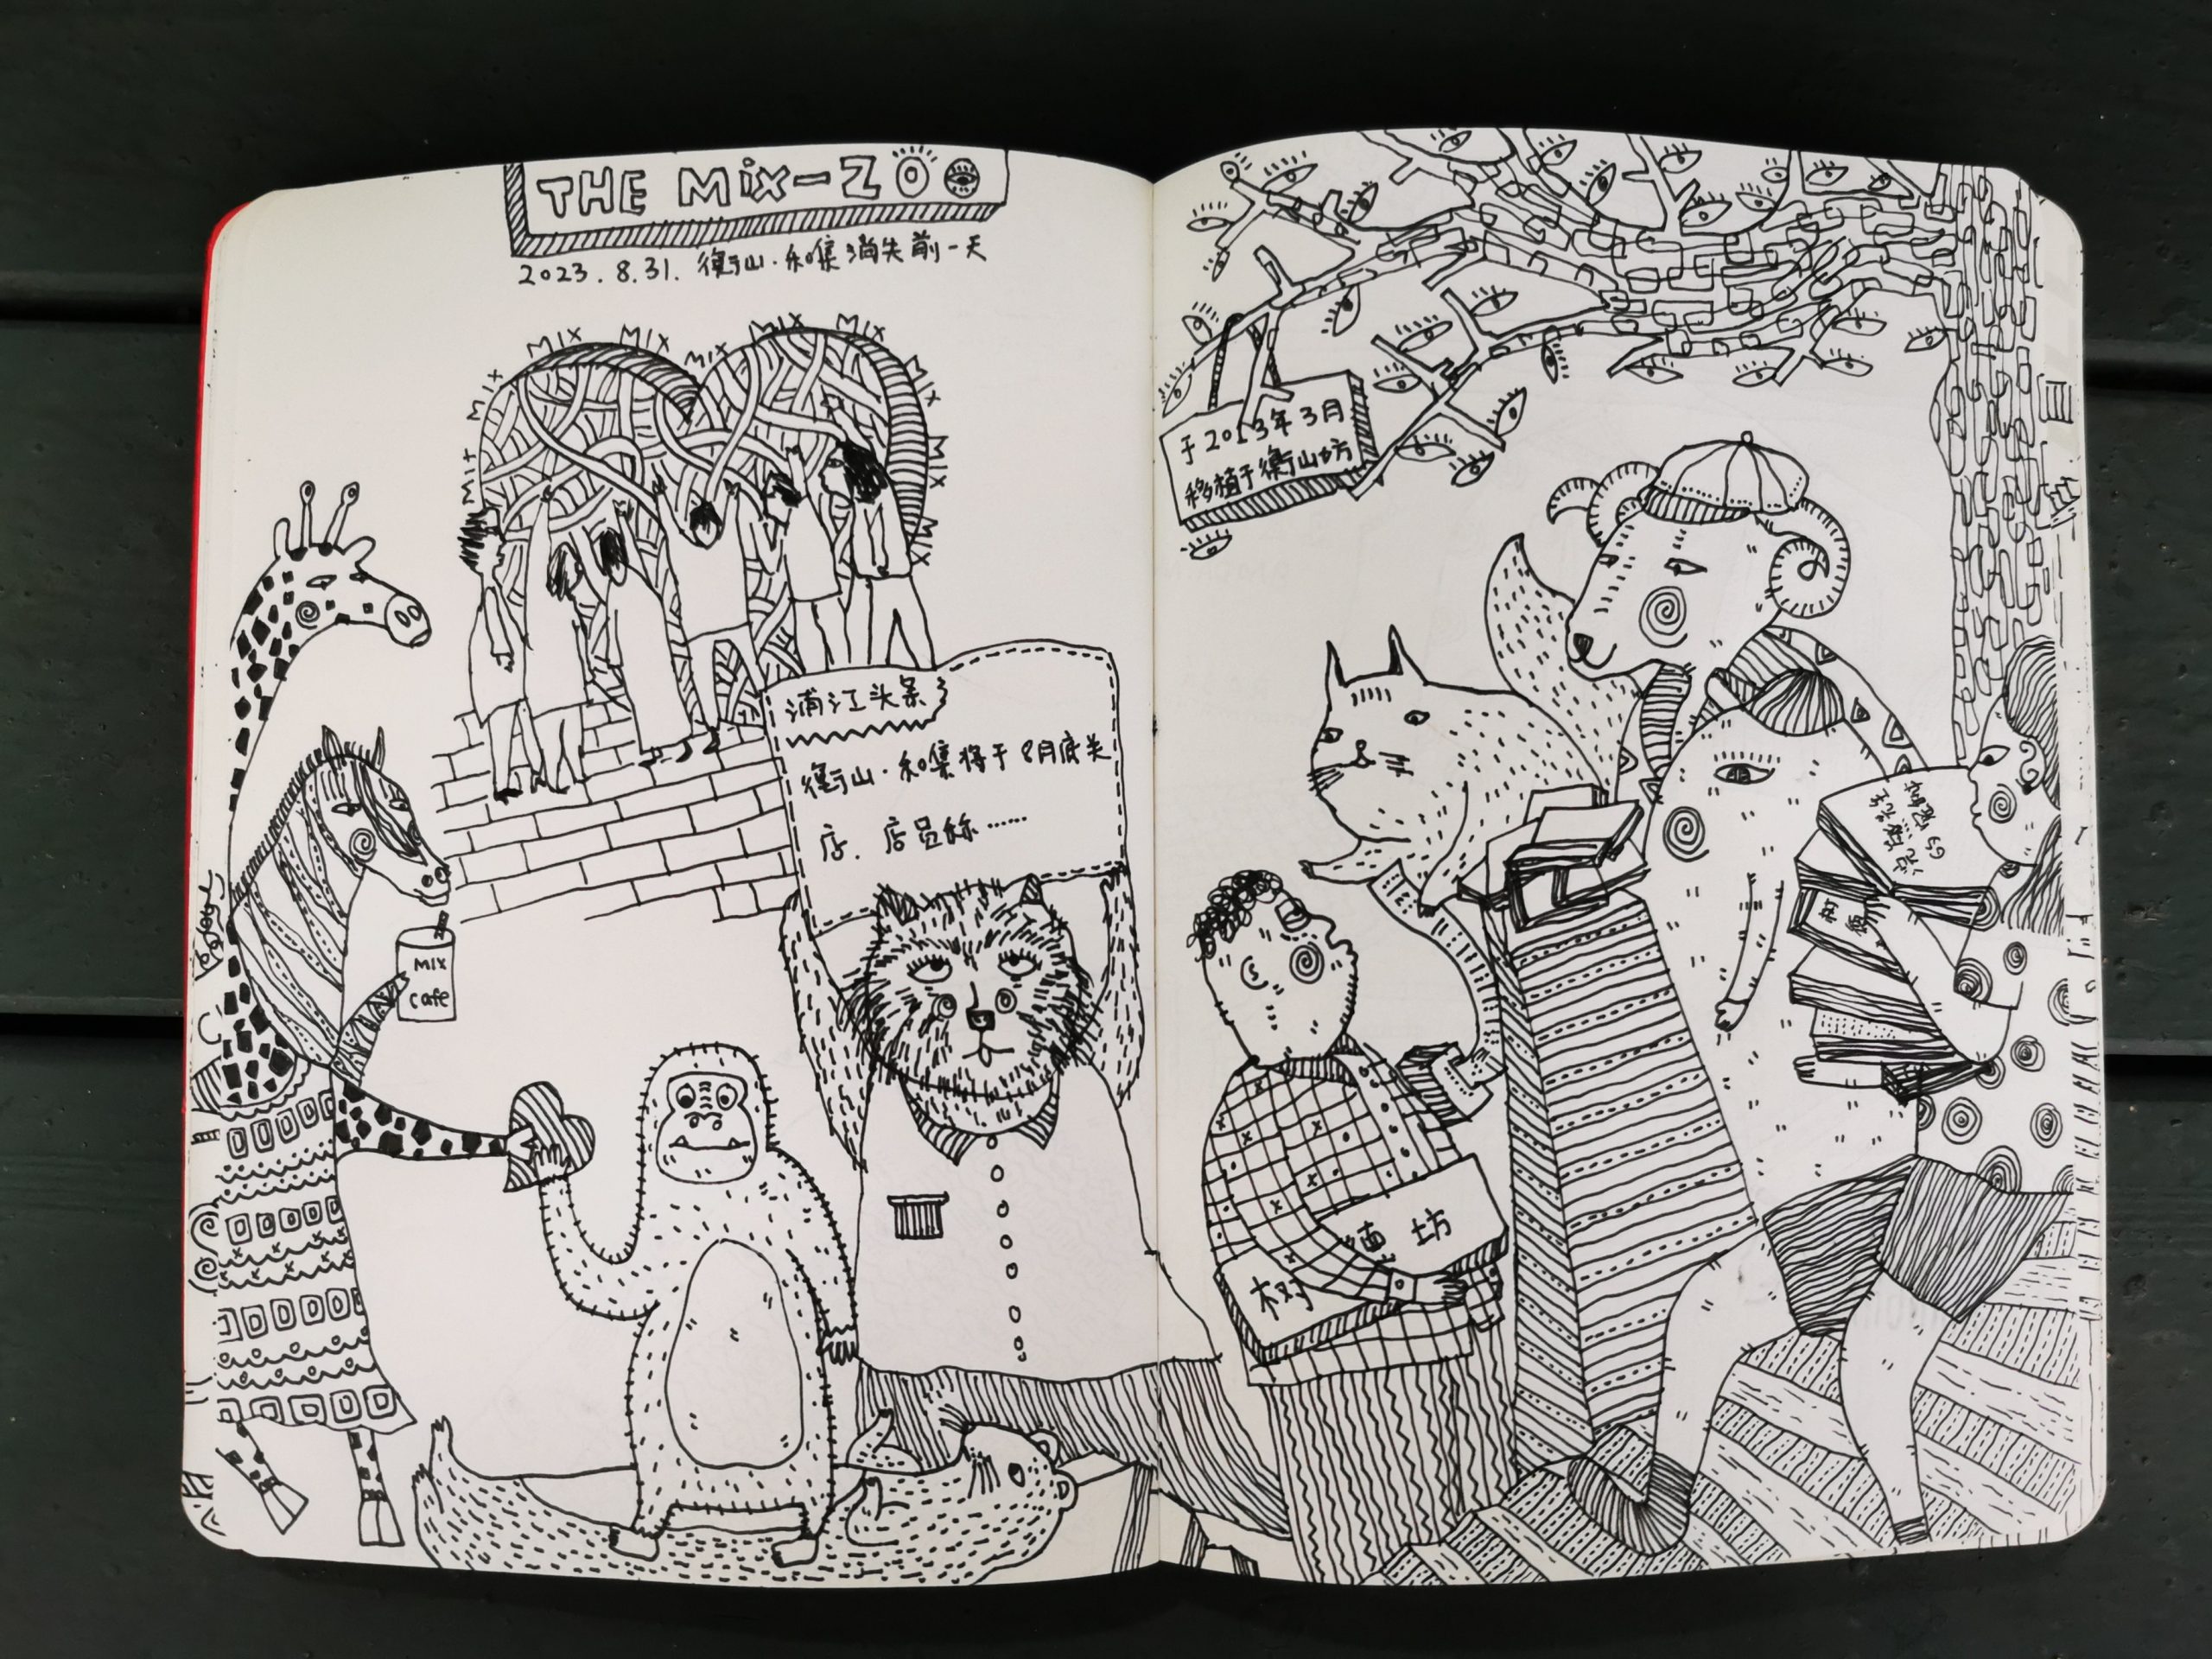 THE MiX-ZOO
2023.8.31. 衡山·和集消失前一天
MIX MIX MIX MIX MIX
MIX MIX MIX MIX MIX
浦江头条
衡山·和集将于8月底关
店.店员称……
MIX
cafe
于2013年3月
移植于衡山坊
树德坊
树德